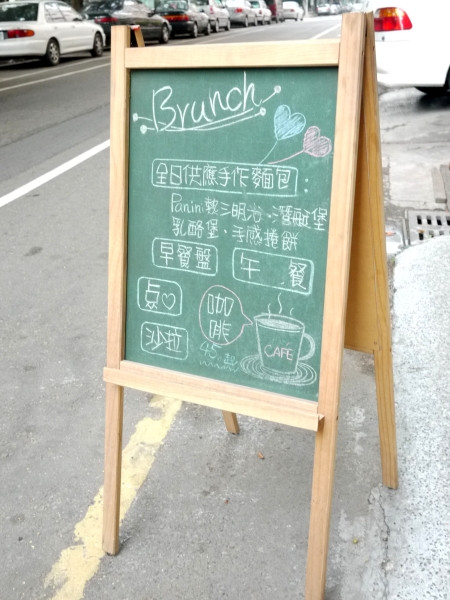 Brunch
全日供應手作麵包：
Panini 軟三明治、潛艇堡
乳酪堡、手感捲餅
早餐盤
午餐
点♡
咖啡
沙拉
45 起
CAFE